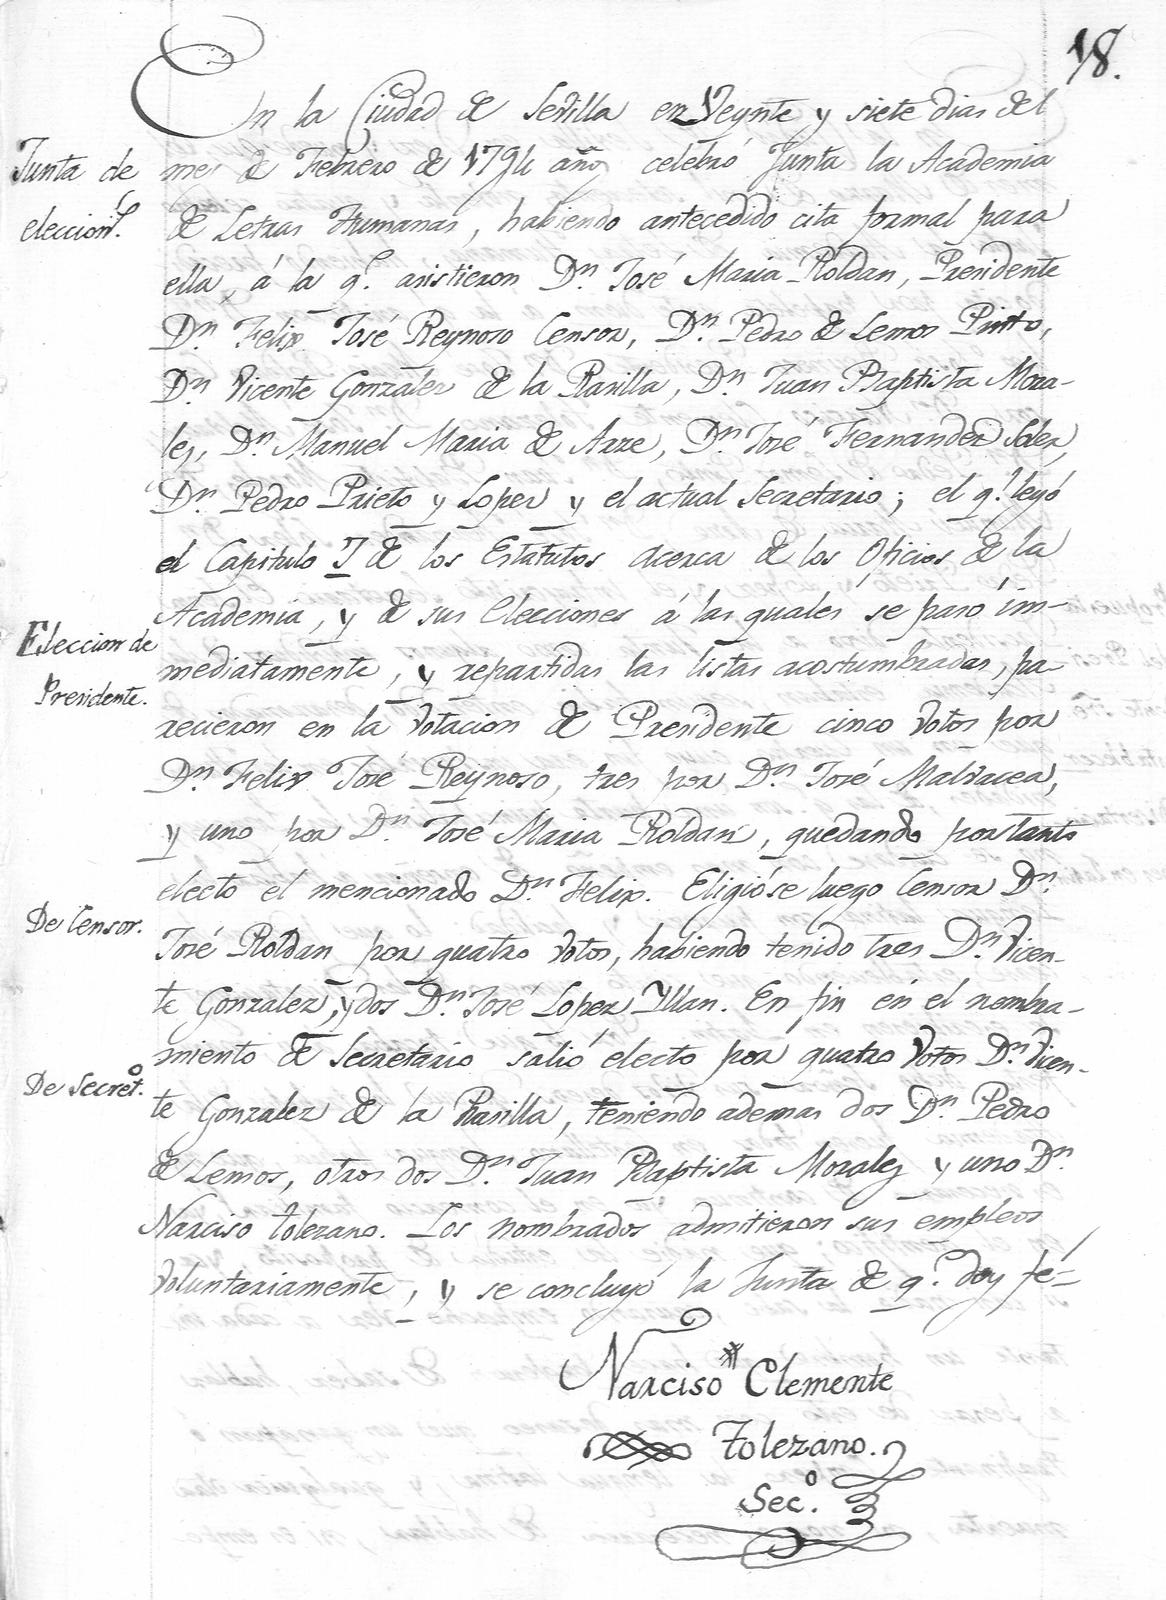 18.
En la Ciudad de Sevilla en Veynte y siete dias del
Junta de
mes de Febrero de 1794 años celebró Junta la Academia
eleccion.s
de Letras Humanas, habiendo antecedido cita formal para
ella, á la q.e asistieron Dn. José Maria Roldan, Presidente
Dn. Felix José Reynoso Censor, Dn. Pedro de Lemos Pinto,
Dn. Vicente Gonzalez de la Rasilla, Dn. Juan Baptista Mora-
les, Dn. Manuel Maria de Arze, Dn. José Fernandez Soler,
Dn. Pedro Prieto y Lopez y el actual Secretario; el q.l leyó
el Capitulo I de los Estatutos acerca de los Oficios de la
Academia, y de sus Elecciones á las quales se pasó im-
Eleccion de
mediatamente, y repartidas las listas acostumbradas, pa-
Presidente.
recieron en la Votacion de Presidente cinco Votos por
Dn. Felix José Reynoso, tres por Dn. José Malvacea,
y uno por Dn. José Maria Roldan, quedando por tanto
electo el mencionado Dn. Felix. Eligióse luego Censor Dn.
De Censor.
José Roldan por quatro Votos, habiendo tenido tres Dn. Vicen-
te Gonzalez, y dos Dn. José Lopez Yllan. En fin en el nombra-
miento de Secretario salió electo por quatro Votos Dn. Vicen-
De Secret.o
te Gonzalez de la Rasilla, teniendo ademas dos Dn. Pedro
de Lemos, otros dos Dn. Juan Baptista Morales y uno Dn.
Narciso Tolezano. Los nombrados admitieron sus empleos
Voluntariamente, y se concluyó la Junta de q.e doy fé=
Narciso Clemente
Tolezano.
Sec.o